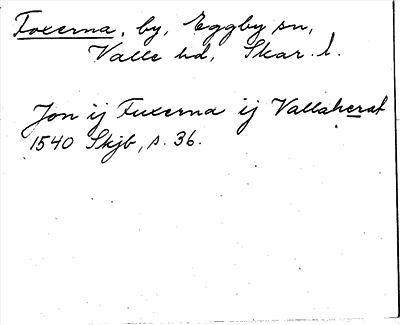 Foxerna, by, Eggby sn,
Valle hd, Skar. l.
Jon ij Fuxerna ij Vallaherat
1540 Skjb, s. 36.